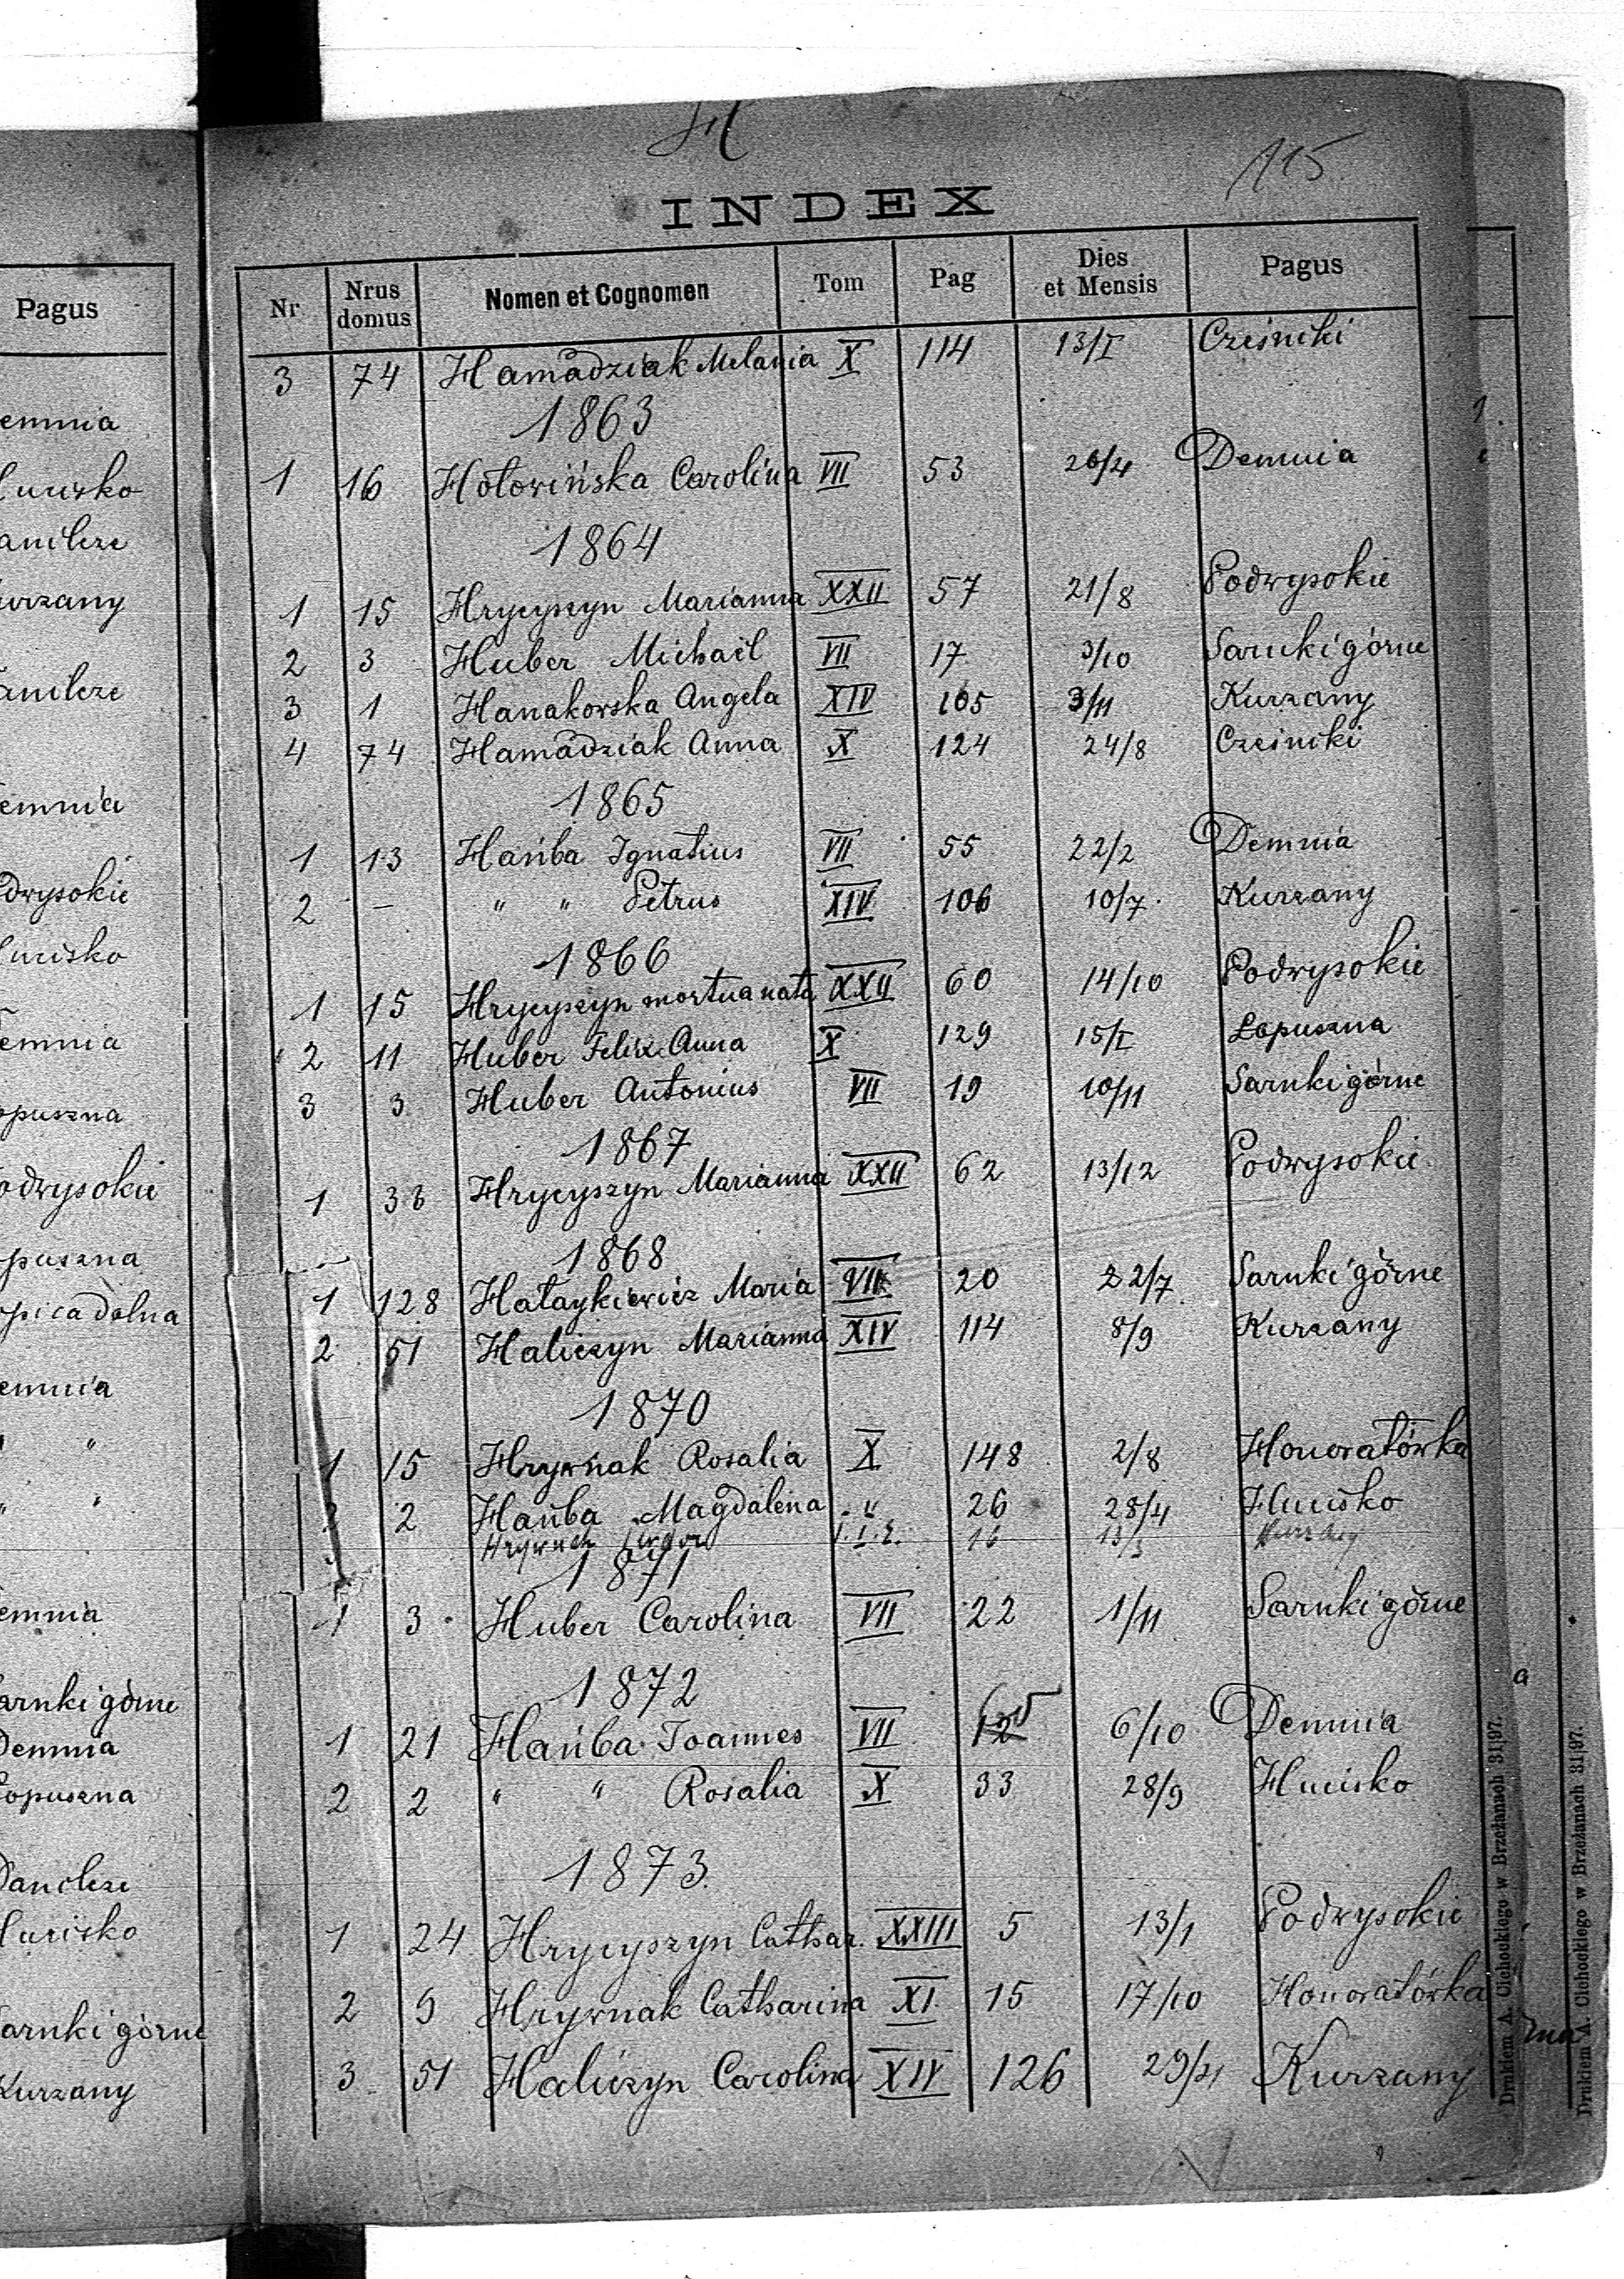 H
115
INDEX
Pagus
Nr Nrus domus Nomen et Cognomen Tom Pag Dies et Mensis Pagus
3 74 Hamadziak Melania X 114 13/I Cześniki
1863
1 16 Hołowińska Carolina VII 53 26/4 Demnia
1864
1 15 Hrycyszyn Marianna XXII 57 21/8 Podwysokie
2 3 Huber Michaël VII 17 3/10 Sarnki górne
3 1 Hanakowska Angela XIV 105 3/11 Kurzany
4 74 Hamadziak Anna X 124 24/8 Cześniki
1865
1 13 Hańba Ignatius VII 55 22/2 Demnia
2 – " " Petrus XIV 106 10/7 Kurzany
1866
1 15 Hrycyszyn mortua nata XXII 60 14/10 Podwysokie
2 11 Huber Felix Anna X 129 15/I Łopuszna
3 3 Huber Antonius VII 19 10/11 Sarnki górne
1867
1 38 Hrycyszyn Marianna XXII 62 13/12 Podwysokie
1868
1 128 Hałaykiewicz Maria VII 20 22/7 Sarnki górne
2 51 Haliczyn Marianna XIV 114 8/9 Kurzany
1870
1 15 Hrywnak Rosalia X 148 2/8 Honoratówka
2 Hańba Magdalena " 26 28/4 Hucisko
16
1871
1 3 Huber Carolina VII 22 1/11 Sarnki górne
1872
1 21 Hańba Joannes VII 65 6/10 Demnia
2 2 " " Rosalia X 33 28/9 Hucisko
1873
1 24 Hrycyszyn Cathar. XXIII 5 13/1 Podwysokie
2 9 Hrywnak Catharina XI 15 17/10 Honoratówka
3 51 Haliczyn Carolina XIV 126 29/4 Kurzany
Drukiem A. Cichockiego w Brzeżanach 31|97.
Drukiem A. Cichockiego w Brzeżanach 31|97.